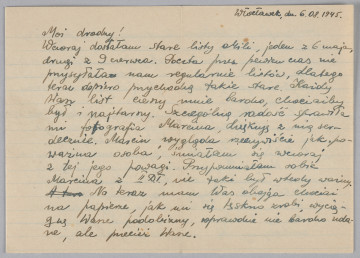 Włocławek, dn. 6.08.1945.
Moi drodzy!
Wczoraj dostałam stare listy , jeden z 6 maja,
drugi z 9 czerwca. Poczta przez pewien czas nie
przysyłała nam regularnie listów, dlatego
teraz dopiero przychodzą takie stare. Każdy
Wasz list cieszy mnie bardzo, chociażby
był i najstarszy. Szczególną radość sprawiła
mi fotografia Marcina, z niej ser-
decznie, Marcin wygląda rzeczywiście jak po-
ważna osoba, i śmiałam się wczoraj
z tej jego powagi. Przypominam sobie
Marcina z , nie taki był wtedy ważny.
No teraz mam Was oboje chociaż
na papierze, jak mi się zrobi wycią-
gnę Wasze podobizny, wprawdzie nie bardzo uda-
ne, ale przecież Wasze.